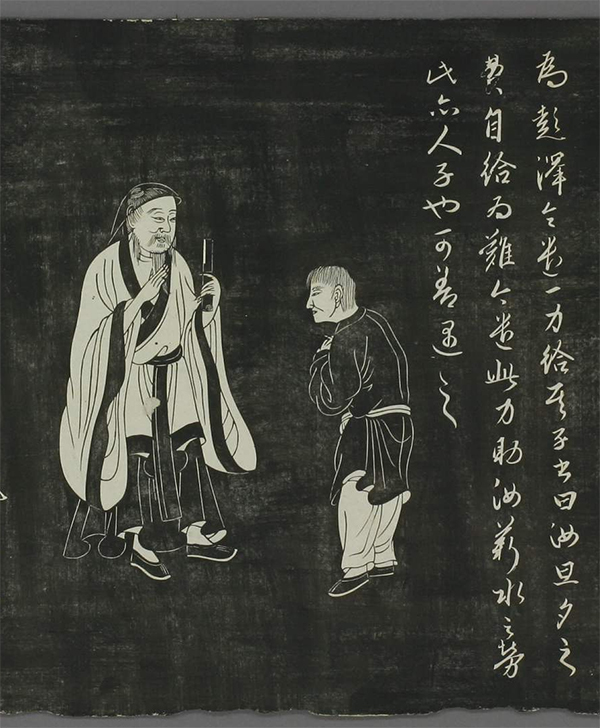 為彭澤令遣一力給其子書曰汝旦夕之
費自給為難今遣此力助汝薪水之勞
此亦人子也可善遇之